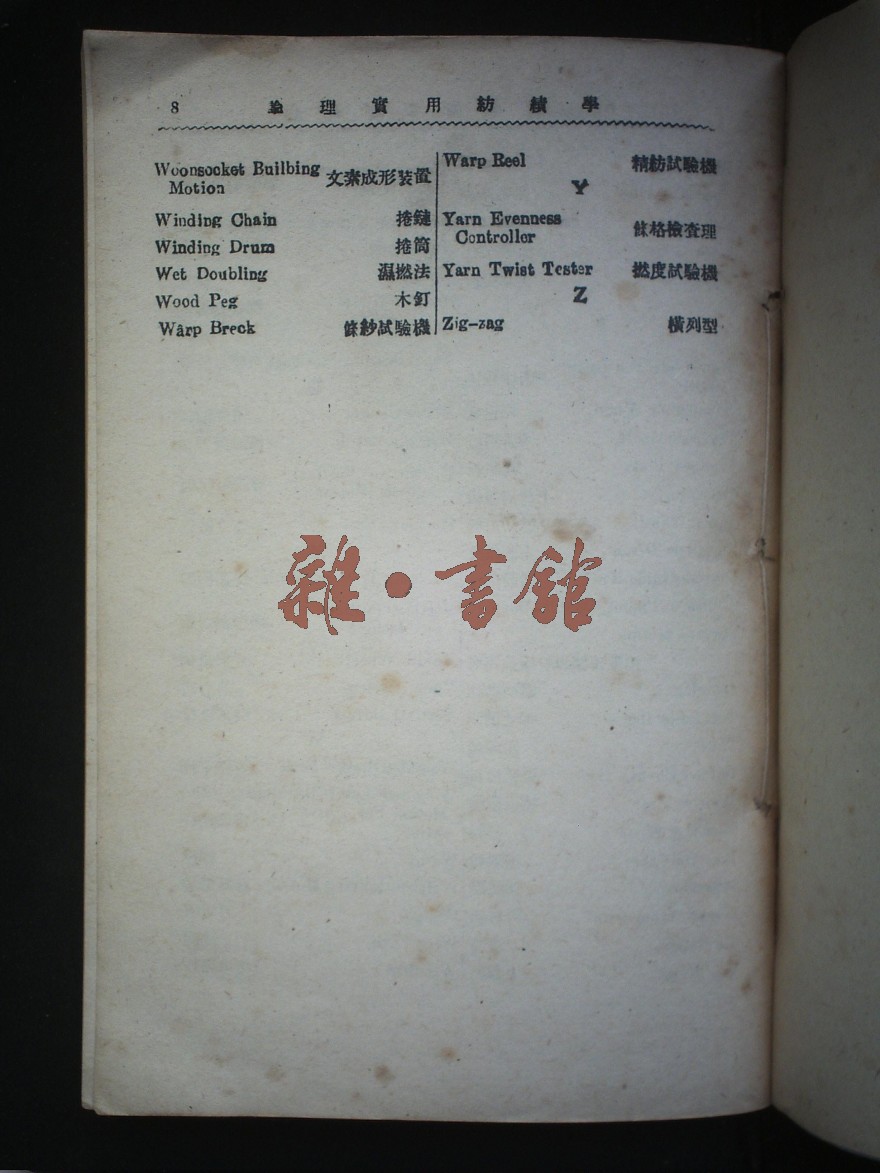 8 論理實用紡績學
Woonsocket Builbing
Motion 文素成形裝置
Winding Chain 捲鏈
Winding Drum 捲筒
Wet Doubling 濕撚法
Wood Peg 木釘
Warp Breck 條紗試驗機
Warp Reel 精紡試驗機
Y
Yarn Evenness
Controller 條格檢查理
Yarn Twist Tester 撚度試驗機
Z
Zig-zag 橫列型
雜·書館